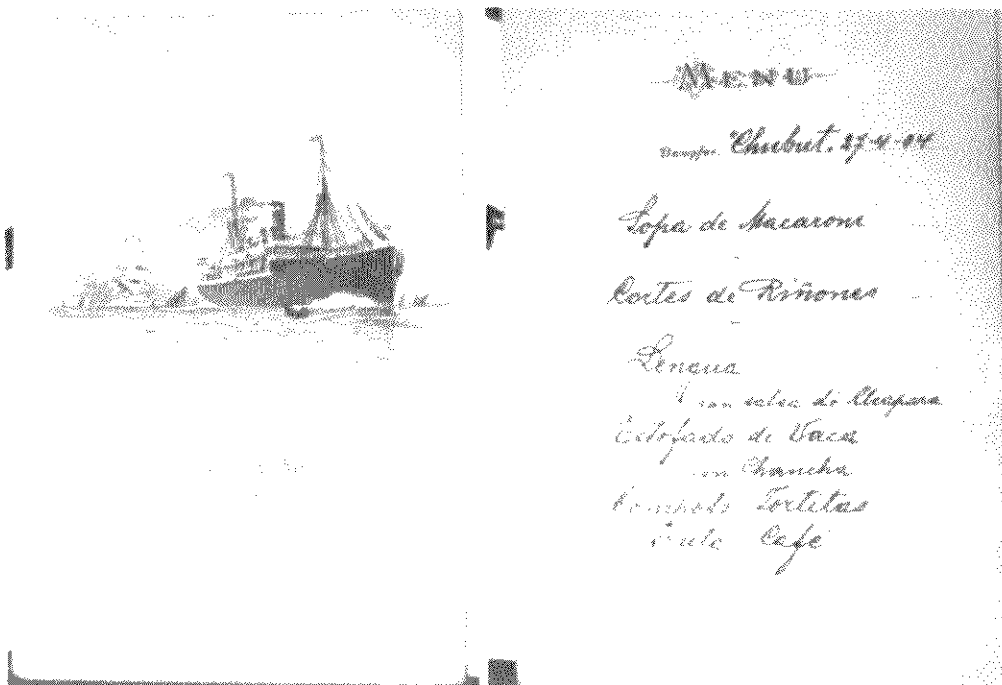 MENU
Dampfer "Chubut. 27-4-04
Sopa de Macaroni
Cortes de Riñones
Lengua
con salsa de Alcapara
Estofado de Vaca
con Chancha
Tortitas
Café